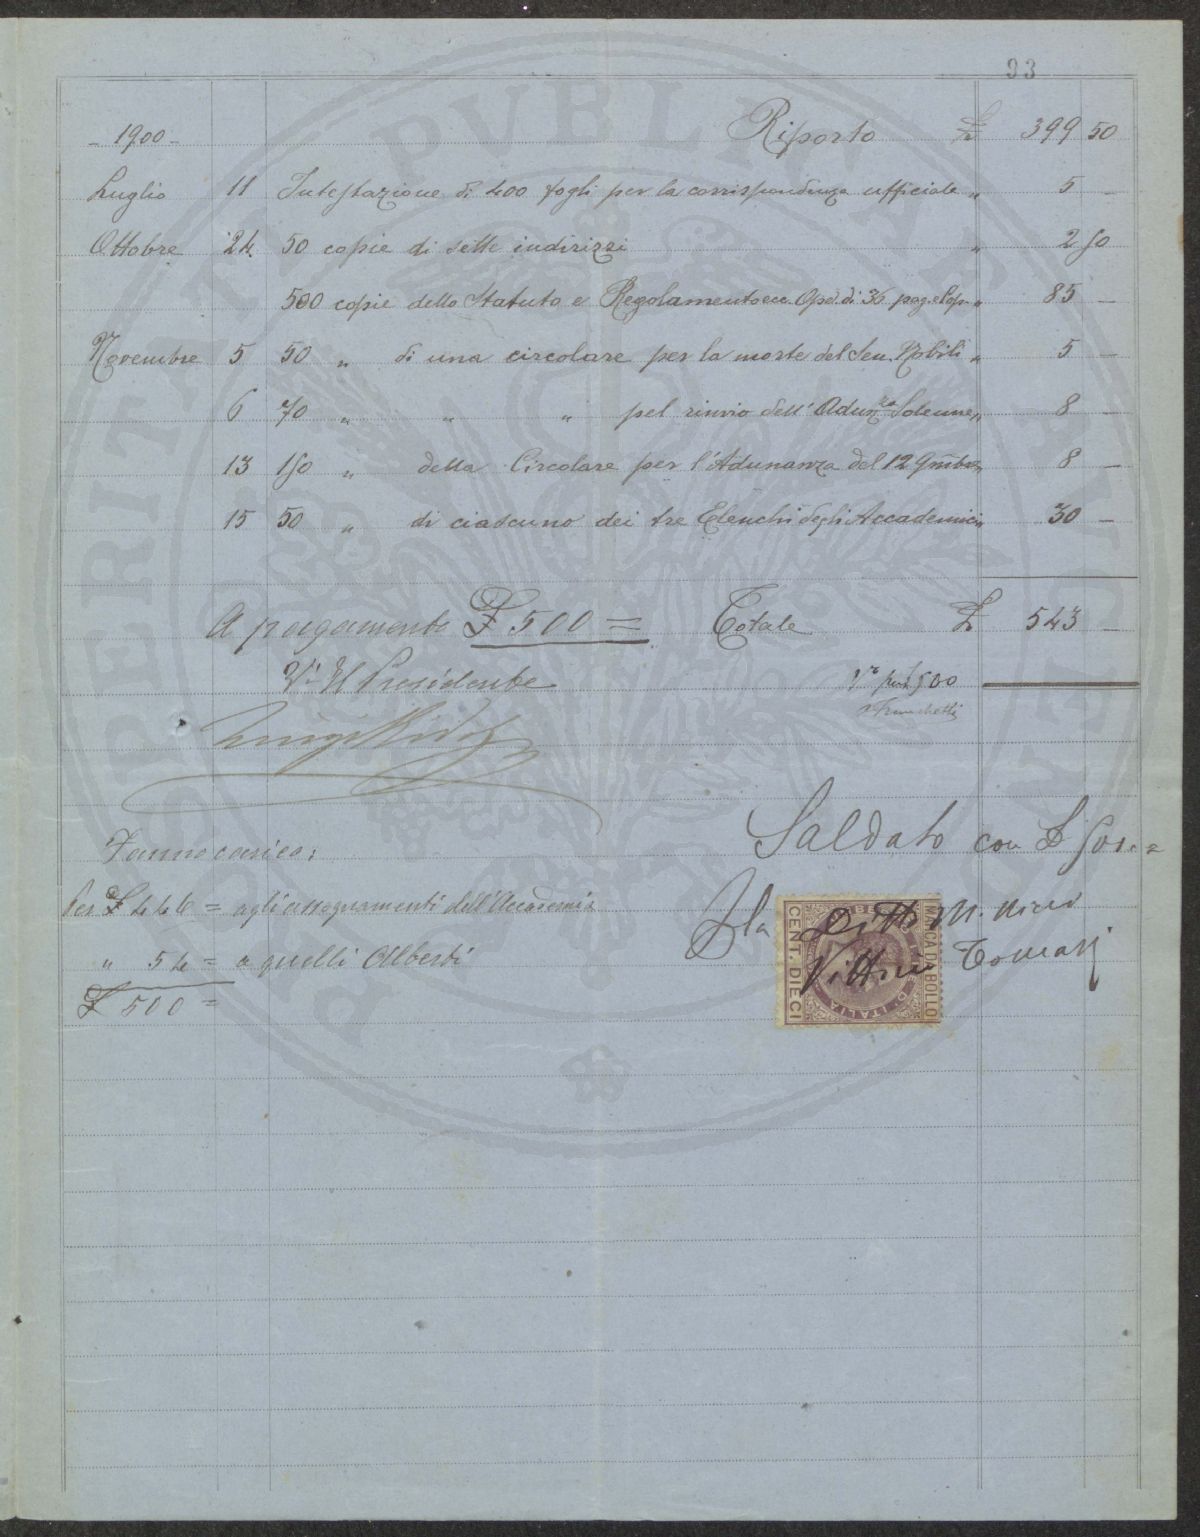 93
- 1900 - Riporto £ 399 50
Luglio 11 Intestazione di 400 fogli per la corrispondenza ufficiale „ 5 -
Ottobre 24 50 copie di sette indirizzi „ 2 50
500 copie dello Statuto e Regolamento ecc. Opo. di 36 pag. e Cop. „ 85 -
Novembre 5 50 „ di una circolare per la morte del Sen. Nobili „ 5 -
6 70 „ „ „ pel rinvio dell'Adunza Solenne „ 8 -
13 150 „ della Circolare per l'Adunanza del 12 9mbre „ 8 -
15 50 „ di ciascuno dei tre Elenchi degli Accademici „ 30 -
A pagamento £ 500 = Totale £ 543 -
V° Il Presidente
V° per £ 500
Franchetti
Luigi Ridolfi
Saldato con £ 500. =
Fanno carico:
Per £ 446 = agli assegnamenti dell'Accademia
p la Ditta M. Ricci
„ 54 = a quelli Alberti
Vittorio Tomasi
£ 500 =
MARCA DA BOLLO
CENT. DIECI
D'ITALIA
PROSPERITATI PVBLICAE AVGENDAE